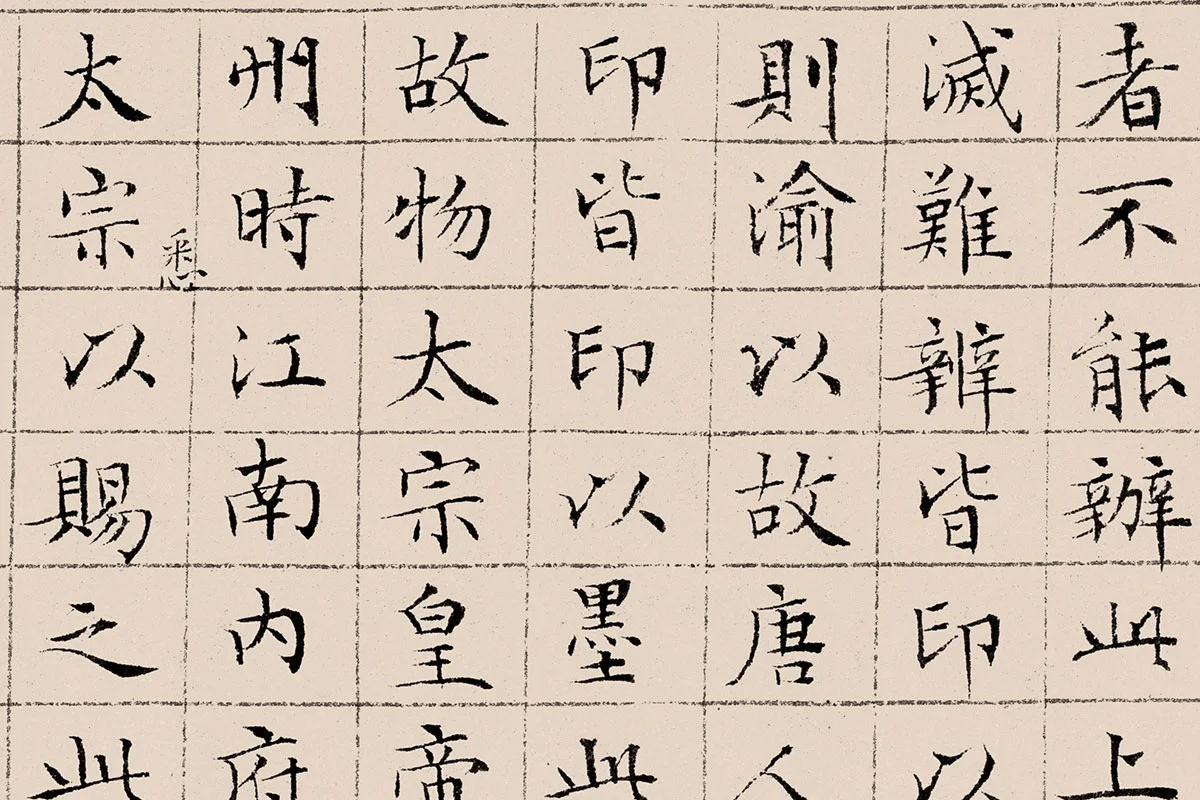 者不能辦此上
滅難辨皆印以
則渝以故唐人
印皆印以墨此
故物太宗皇帝
州時江南內府
悉
太宗以賜之此